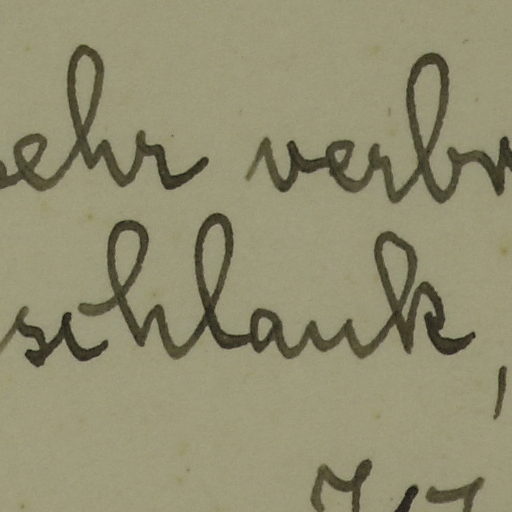 sehr verbr
schlank,